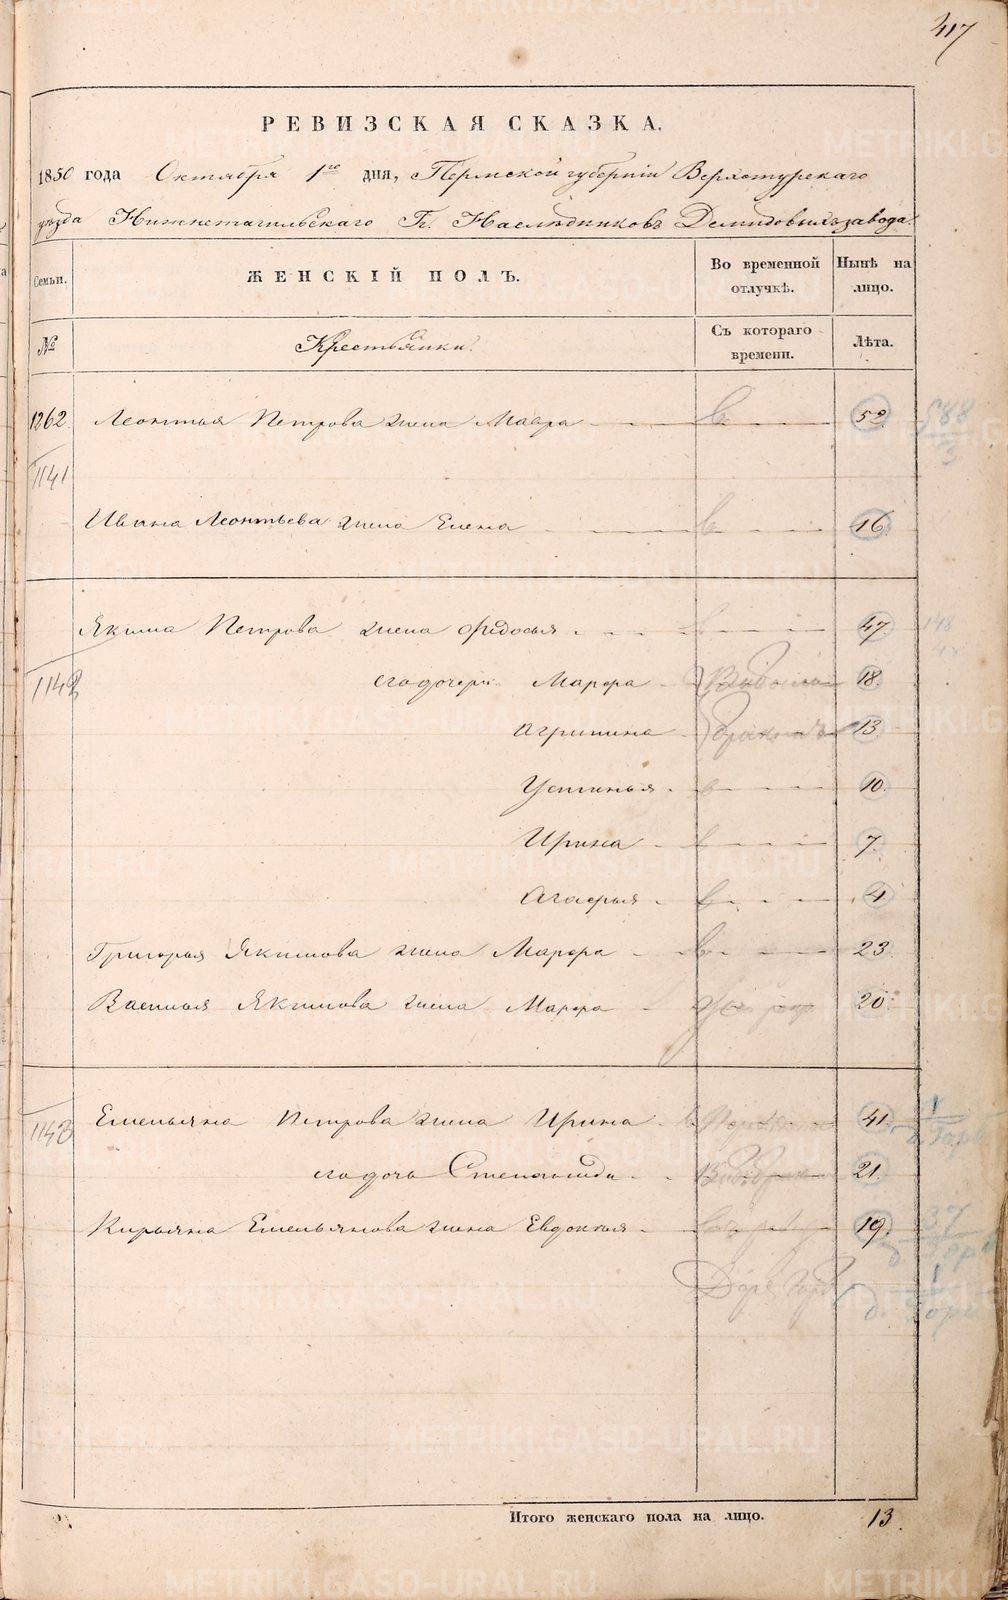 417
РЕВИЗСКАЯ СКАЗКА.
1850 года Октября 1го дня, Пермской губерніи Верхотурскаго
уѣзда Нижнетагильскаго Гг. Наслѣдниковъ Демидовыхъ завода.
Семьи. ЖЕНСКІЙ ПОЛЪ. Во временной отлучкѣ. Нынѣ на лицо.
№ Крестьянки. Съ котораго времени. Лѣта.
1262. Леонтья Петрова жена Мавра 52
588
1141
Ивана Леонтьева жена Елена 16
Якима Петрова жена Федосья 47. 148
1142
его дочери Марфа 18.
Агрипина 13.
Устинья 10.
Ирина 7.
Агафья 4
Григорья Якимова жена Марфа 23.
Василья Якимова жена Марфа 20.
1143 Емельяна Петрова жена Ирина 41.
его дочь Степанида 21.
Кирьяна Емельянова жена Евдокья 19. 37
Итого женскаго пола на лицо. 13.
METRIKI.GASO-URAL.RU